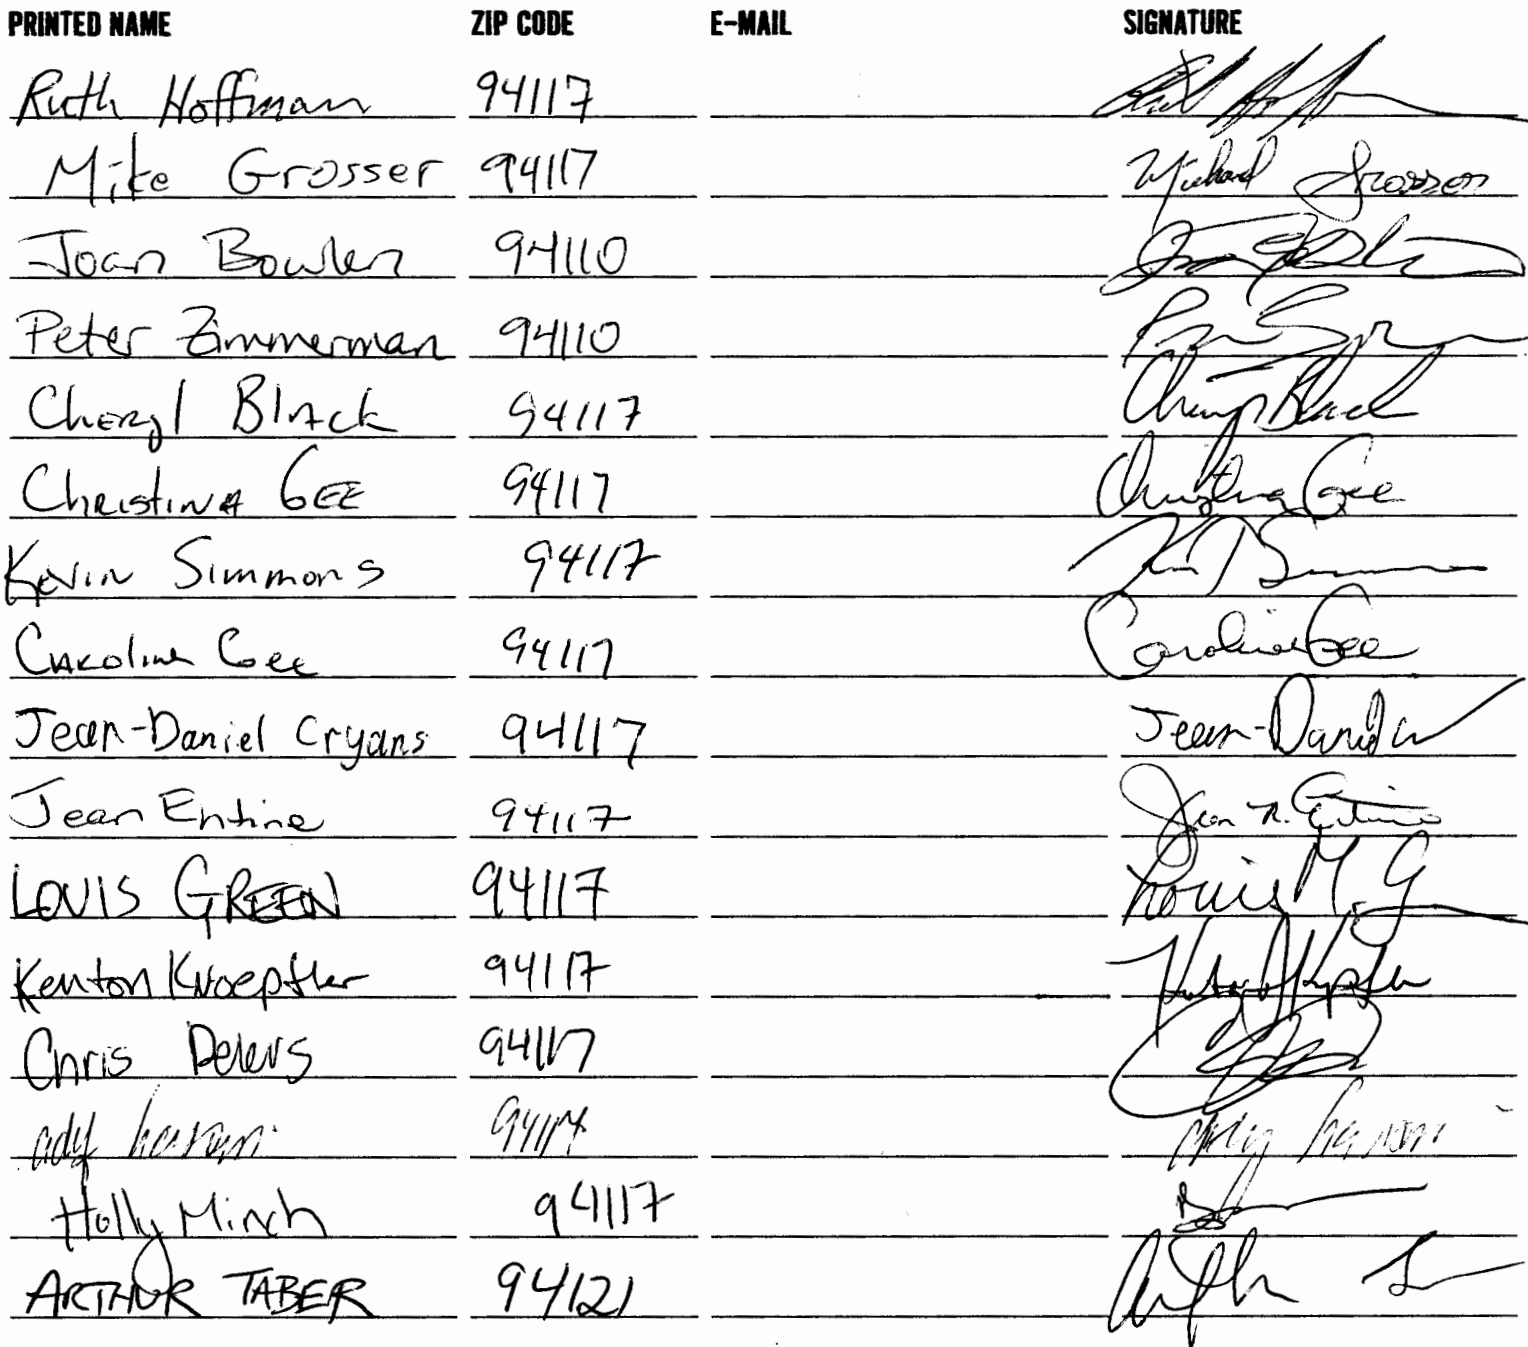 PRINTED NAME ZIP CODE E-MAIL SIGNATURE
Ruth Hoffman 94117
Mike Grosser 94117 Michael Grosser
Joan Bowlen 94110
Peter Zimmerman 94110
Cheryl Black 94117 Cheryl Black
Christina Gee 94117 Christina Gee
Kevin Simmons 94117
Caroline Gee 94117 Caroline Gee
Jean-Daniel Cryans 94117 Jean-Daniel
Jean Entine 94117 Jean R. Entine
LOUIS GREEN 94117 Louis M. G
Kenton Knoepfler 94117
Chris 94117
ady 94117 ady
Holly Minch 94117
ARTHUR TABER 94121